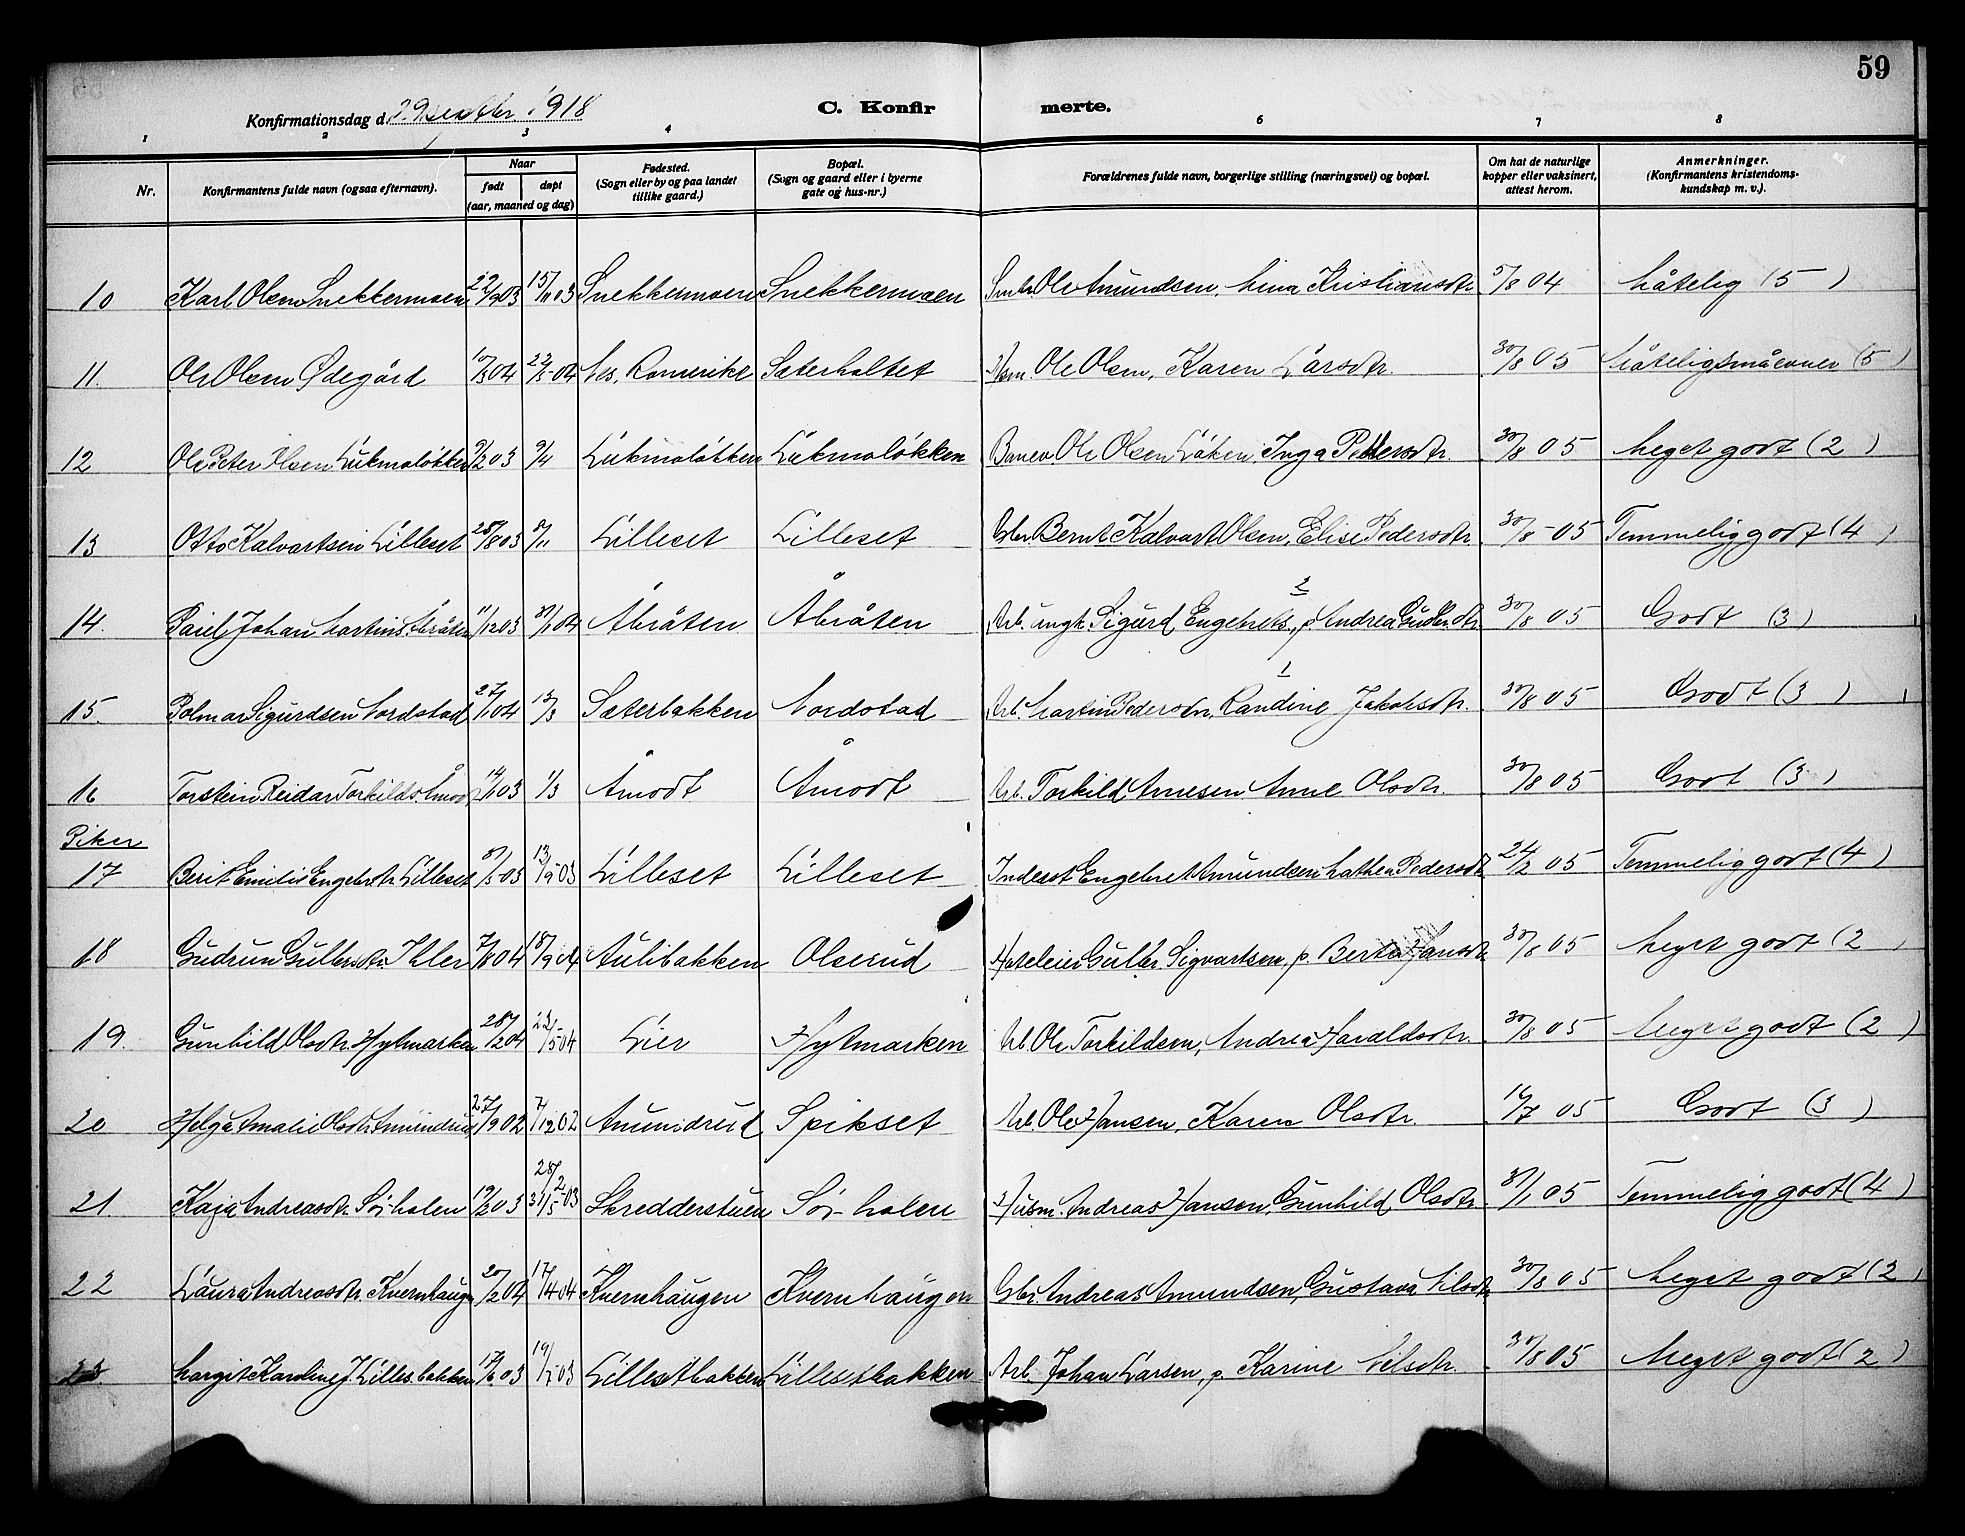 59
Konfirmationsdag d. 29 septbr. 1918
C. Konfir merte.
1 2 3 4 5 6 7 8
Nr.
Konfirmantens fulde navn (ogsaa efternavn).
Naar
født
døpt
(aar, maaned og dag)
Fødested.
(Sogn eller by og paa landet
tillike gaard.)
Bopæl.
(Sogn og gaard eller i byerne
gate og hus-nr.)
Forældrenes fulde navn, borgerlige stilling (næringsvei) og bopæl.
Om hat de naturlige
kopper eller vaksinert,
attest herom.
Anmerkninger.
(Konfirmantens kristendoms-
kundskap m. v.).
10 Karl Olsen Snekkermoen 22/9 03 15/11 03 Snekkermoen Snekkermoen Ole Amundsen, Mina Kristiansdtr. 5/8 04 Måtelig (5)
11. Ole Olsen Ødegård 10/3 04 22/5 04 Nes, Romerike Sæterholtet Ole Olsen, Karen Larsdtr. 30/8 05 Måtelig små evner (5)
12 Ole Peter Olsen Lukmoløkken 9/2 03 9/4 Lukmoløkken Lukmoløkken Banev. Ole Olsen Løken, Inga Pedersdtr. 30/8 05 Meget godt (2)
13 Otto Kalvartsen Lilleset 28/8 03 8/11 Lilleset Lilleset Gbr. Bernt Kalvart Olsen, Elise Pedersdtr. 30/8 05 Temmelig godt (4)
14. Johan Martins. Åbråten 11/12 03 31/1 04 Åbråten Åbråten 2 Arb. ungk. Sigurd Engebrets., p. Andrea Gulbr.dtr. 30/8 05 Godt (3)
15. Polmar Sigurdsen Nordstad 27/1 04 13/3 Sæterbakken Nordstad 1 Arb. Martin Pedersen, Randine Jakobsdtr. 30/8 05 Godt (3)
16 Torstein Reidar Torkilds. Åmodt 14/1 03 1/3 Åmodt Åmodt Arb. Torkild Arnesen, Anne Olsdtr. 30/8 05 Godt (3)
Piker
17 Berit Emilie Engebr.dtr. Lilleset 8/5 03 13/9 03 Lilleset Lilleset Inderst Engebret Amundsen, Mathea Pedersdtr. 24/2 05 Temmelig godt (4)
18 Gudrun Gulbr.dtr. Ihler 7/8 04 18/9 04 Aulibakken Olserud Gulbr. Sigvartsen, p. Berta Hansdtr. 30/8 05 Meget godt (2
19. Gunhild Olsdtr. Hytmarken 28/2 04 23/5 04 Lier Hytmarken Arb. Ole Torkildsen, Andrea Haraldsdtr. 30/8 05 Meget godt (2)
20 Helga Amalie Olsdtr. Amundrud 27/9 02 7/12 02 Amundrud Spikset Arb. Ole Hansen, Karen Olsdtr. 16/7 05 Godt (3)
21. Kaja Andreasdtr. Sør-holen 19/2 03 28/2 31/5 03 Skredderstuen Sør-holen Husm. Andreas Hansen, Gunhild Olsdtr. 31/1 05 Temmelig godt (4)
22 Laura Andreasdtr. Kvernhaugen 20/2 04 17/4 04 Kvernhaugen Kvernhaugen Gbr. Andreas Amundsen, Gustava Nilsdtr. 30/8 05 Meget godt (2)
23. Margit Karoline J. Lilles.bakken 03 19/7 03 Lillesetbakken Lillesetbakken Arb. Johan Larsen, p. Karine Nilsdtr. 30/8 05 Meget godt (2)